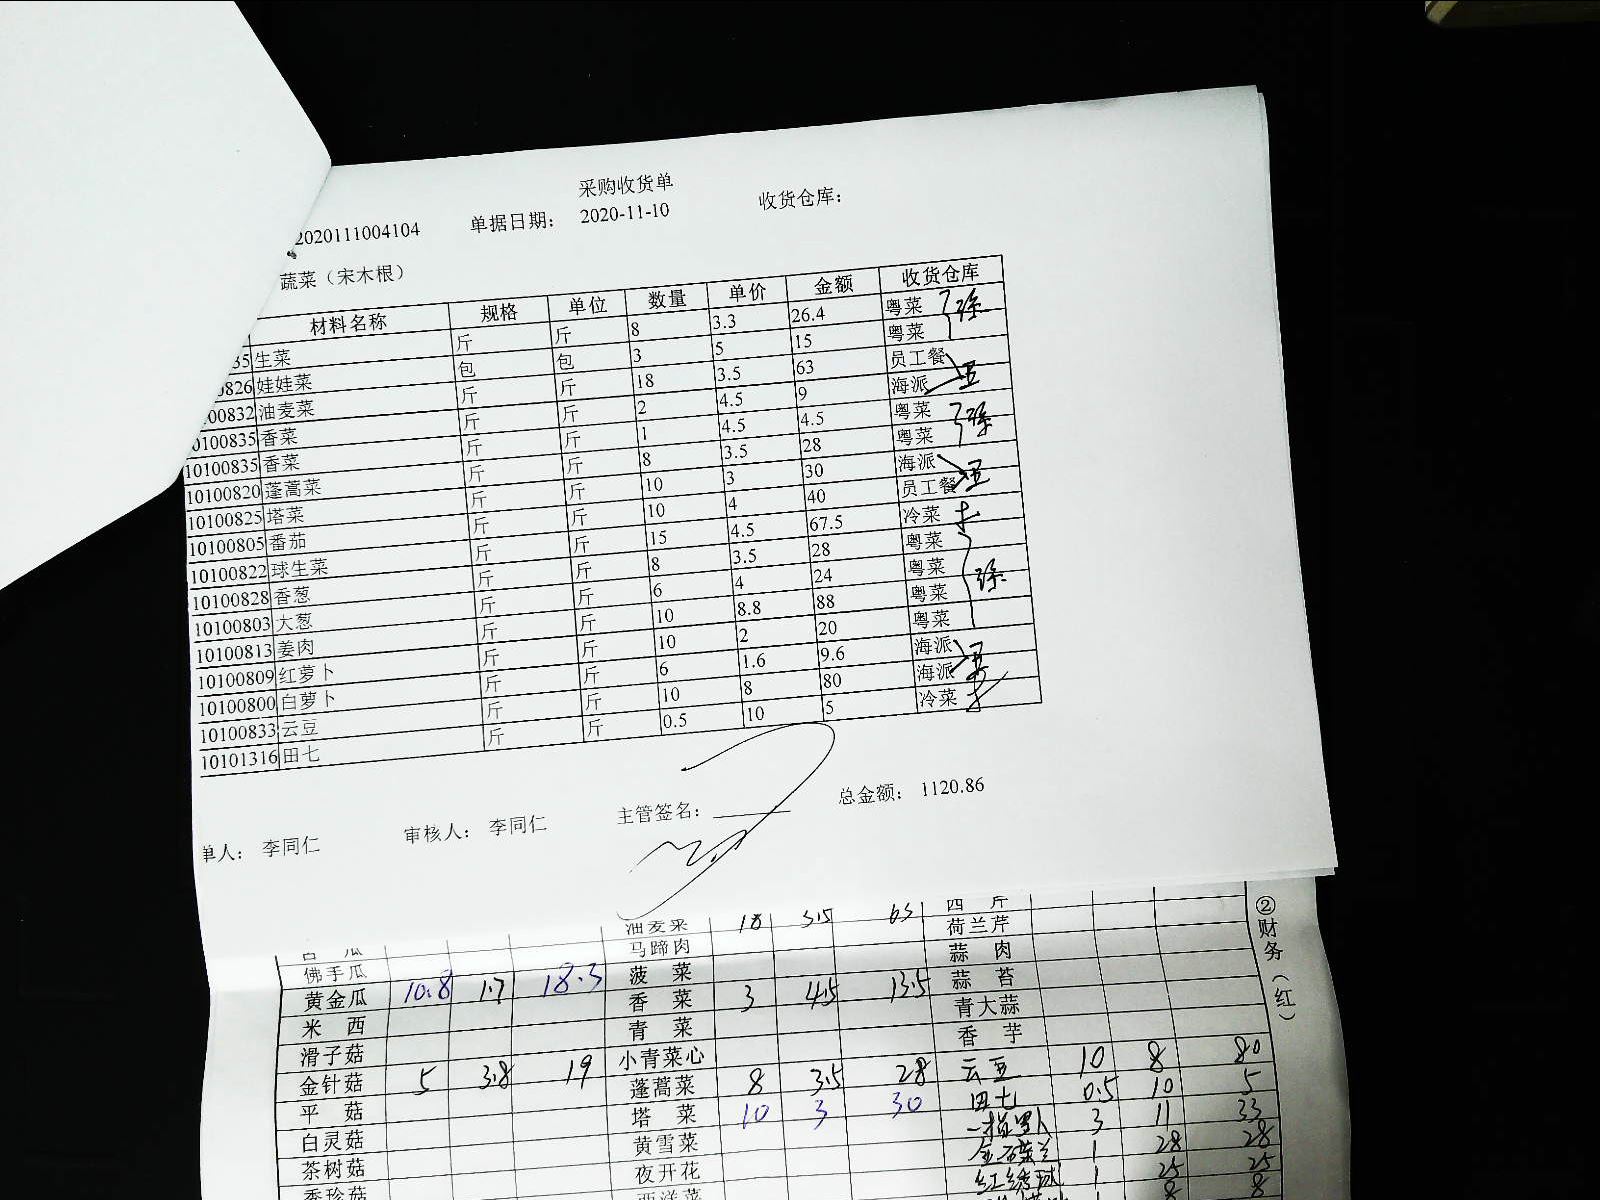 采购收货单
2020111004104 单据日期： 2020-11-10 收货仓库：
蔬菜（宋木根）
材料名称 规格 单位 数量 单价 金额 收货仓库
35 生菜 斤 斤 8 3.3 26.4 粤菜
0826 娃娃菜 包 包 3 5 15 粤菜
00832 油麦菜 斤 斤 18 3.5 63 员工餐
0100835 香菜 斤 斤 2 4.5 9 海派
10100835 香菜 斤 斤 1 4.5 4.5 粤菜
10100820 蓬蒿菜 斤 斤 8 3.5 28 粤菜
10100825 塔菜 斤 斤 10 3 30 海派
10100805 番茄 斤 斤 10 4 40 员工餐
10100822 球生菜 斤 斤 15 4.5 67.5 冷菜
10100828 香葱 斤 斤 8 3.5 28 粤菜
10100803 大葱 斤 斤 6 4 24 粤菜
10100813 姜肉 斤 斤 10 8.8 88 粤菜
10100809 红萝卜 斤 斤 10 2 20 粤菜
10100800 白萝卜 斤 斤 6 1.6 9.6 海派
10100833 云豆 斤 斤 10 8 80 海派
10101316 田七 斤 斤 0.5 10 5 冷菜
单人： 李同仁 审核人： 李同仁 主管签名： 总金额： 1120.86
油麦菜 18 3.5 63 西 芹
瓜 马蹄肉 荷兰芹
佛手瓜 菠 菜 蒜 肉
黄金瓜 10.8 1.7 18.3 香 菜 3 4.5 13.5 蒜 苔
米 西 青 菜 青大蒜
滑子菇 小青菜心 香 芋
金针菇 5 3.8 19 蓬蒿菜 8 3.5 28 云豆 10 8 80
平 菇 塔 菜 10 3 30 田七 0.5 10 5
白灵菇 黄雪菜 3 11 33
茶树菇 夜开花 1 28 28
秀珍菇 西洋菜 红绣球 1 25 25
②财务（红）